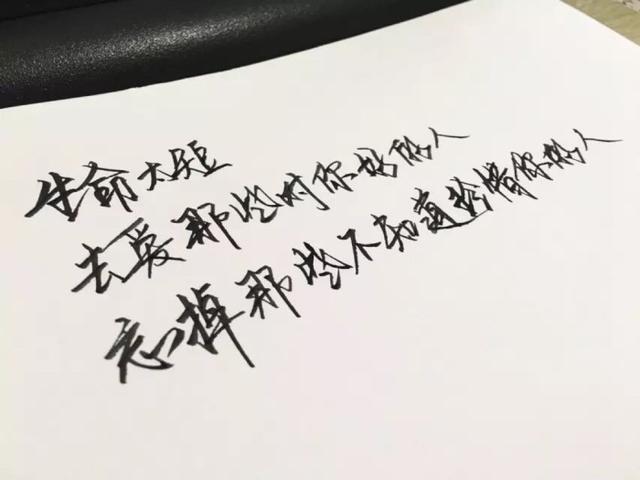 生命太短
去爱那些对你好的人
忘掉那些不知道珍惜你的人